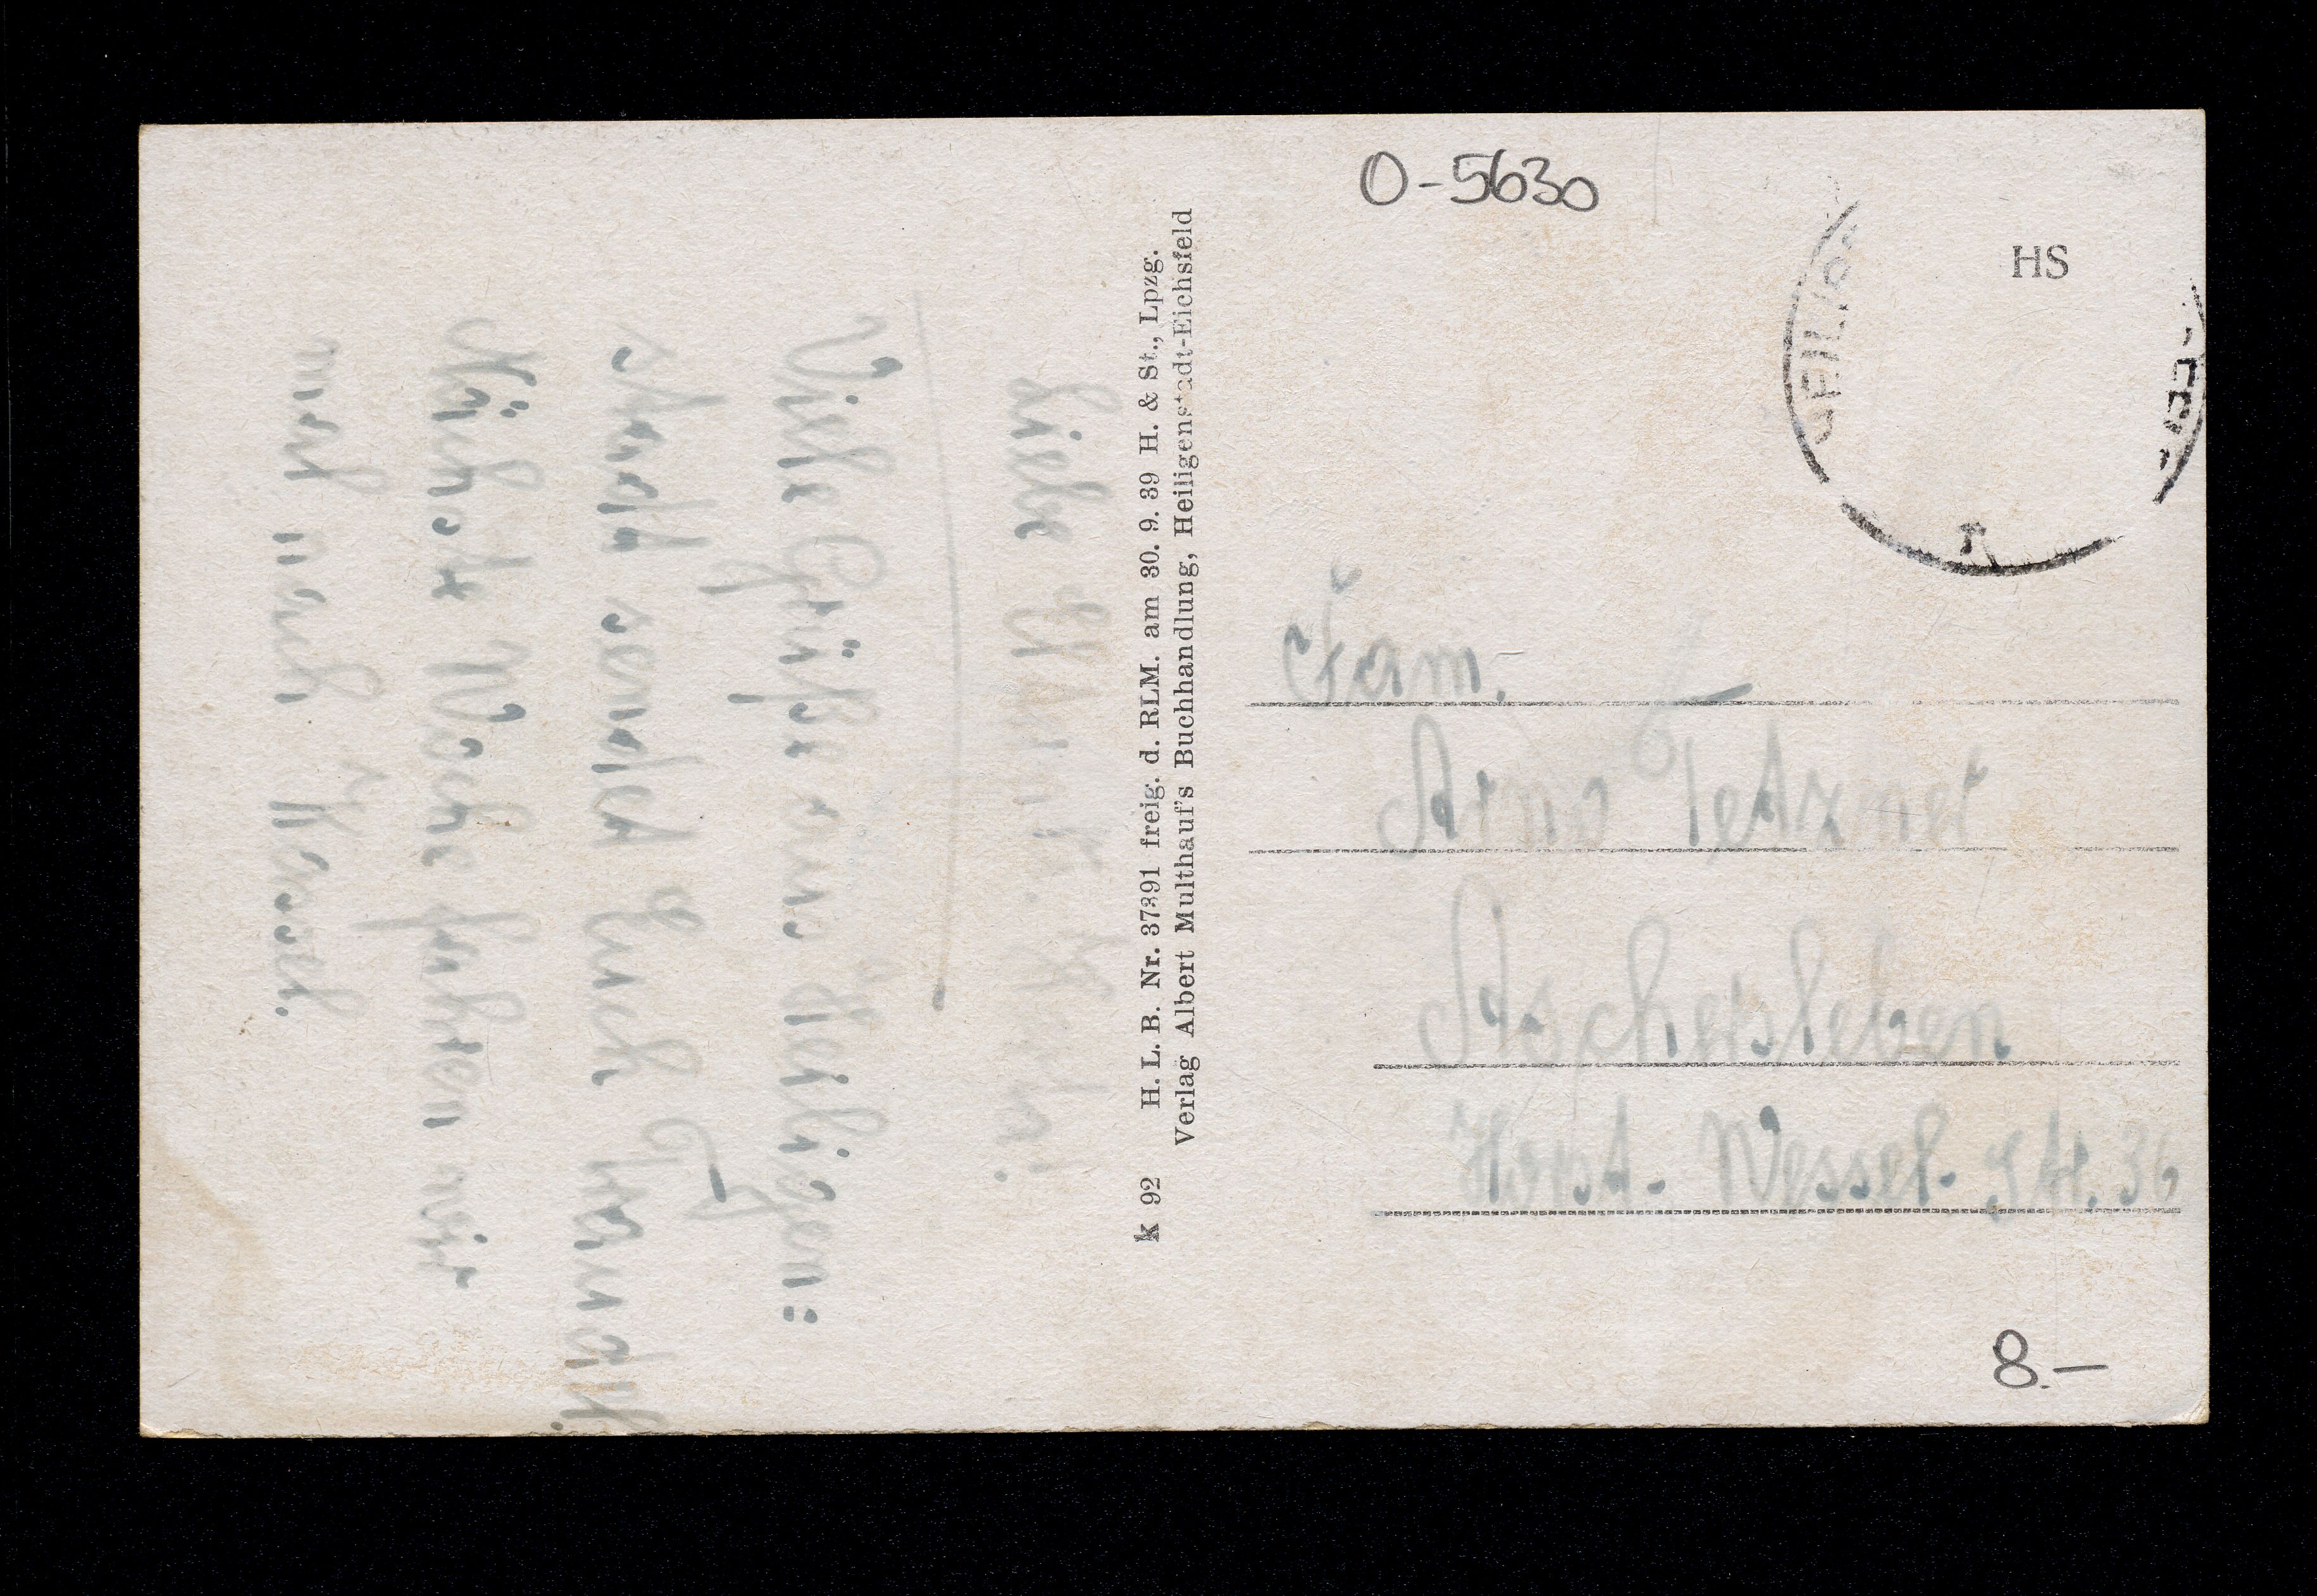 O-5630
HS
Liebe
Viele Grüße aus Heiligen=
stadt sendet Euch
Nächste Woche fahren wir
nach Kassel.
k 92 H. L. B. Nr. 37391 freig. d. RLM. am 30. 9. 39 H. & St., Lpzg.
Verlag Albert Multhauf's Buchhandlung, Heiligenstadt-Eichsfeld
Fam.
Arno Tetzner
Aschersleben
Horst-Wessel-Str. 36
8.–